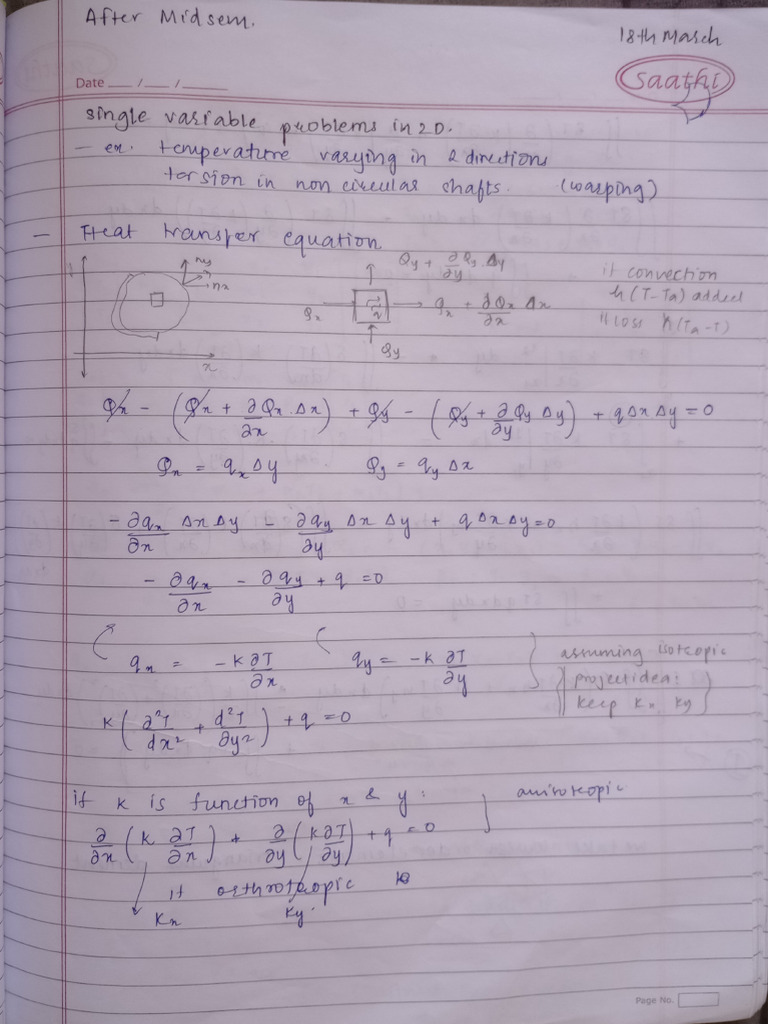 After Midsem.
18th March
Date ___ / ___ / ______
Saathi
single variable problems in 2D.
- ex. temperature varying in 2 directions
torsion in non circular shafts. (warping)
- Heat transfer equation
ny
nx
x
Qy + ∂Qy/∂y Δy
Qx
q
qx + ∂Qx/∂x Δx
Qy
if convection
h(T-Ta) added
" loss h(Ta-T)
Qx - (Qx + ∂Qx/∂x . Δx) + Qy - (Qy + ∂Qy/∂y Δy) + qΔxΔy = 0
Qx = qxΔy Qy = qyΔx
- ∂qx/∂x ΔxΔy - ∂qy/∂y ΔxΔy + qΔxΔy = 0
- ∂qx/∂x - ∂qy/∂y + q = 0
qx = -k ∂T/∂x qy = -k ∂T/∂y
assuming isotropic
project idea:
keep kx, ky
k(∂²T/dx² + d²T/∂y²) + q = 0
if k is function of x & y:
anisotropic
∂/∂x (k ∂T/∂x) + ∂/∂y (k ∂T/∂y) + q = 0
if orthotropic
kx ky.
Page No.